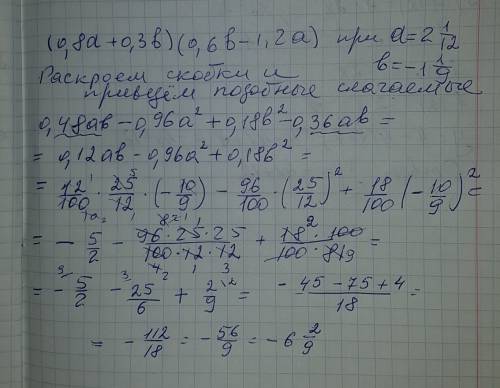 (0,8a+0,3b)(0,6b-1,2a) при a=2 1/12
b=-1 1/9
Раскроем скобки и
приведём подобные слагаемые
0,48ab-0,96a²+0,18b²-0,36ab=
=0,12ab-0,96a²+0,18b²=
=12/100·25/12·(-10/9)-96/100·(25/12)²+18/100(-10/9)²=
=-5/2-96·25·25/100·12·12+18·100/100·81=
=-5/2-25/6+2/9=-45-75+4/18=
=-112/18=-56/9=-6 2/9